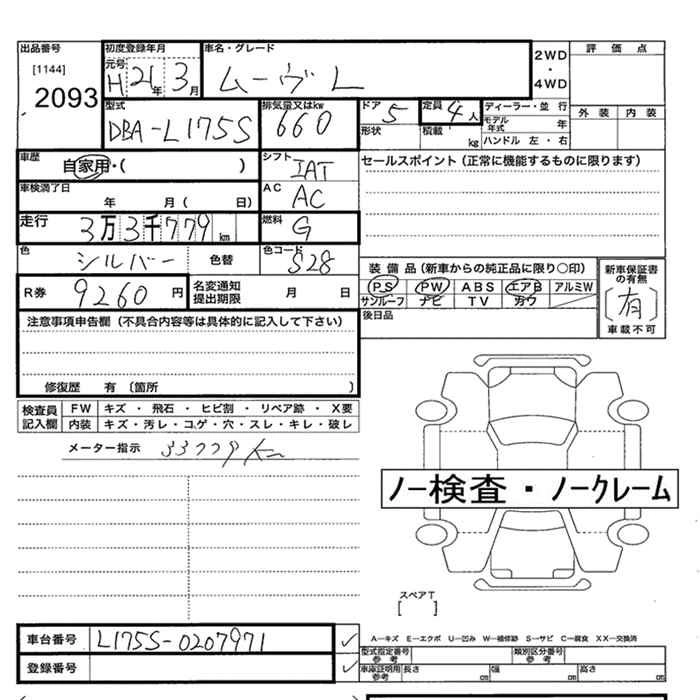 出品番号
[1144]
2093
初度登録年月
元号
H 21年 3月
車名・グレード
ムーヴ L
2WD
・
4WD
評価点
外装 内装
型式
DBA-L175S
排気量又はkw
660
ドア 5
形状
定員 4人
積載 kg
ディーラー・並行
モデル年式 年
ハンドル 左・右
車歴
自家用・( )
シフト
IAT
セールスポイント(正常に機能するものに限ります)
車検満了日
年 月( 日)
AC
AC
走行
3万3千779km
燃料
G
色
シルバー 色替
色コード
S28
装備品(新車からの純正品に限り○印)
PS PW ABS エアB アルミW
サンルーフ ナビ TV カワ
新車保証書の有無
〔有〕
車載不可
R券 9260円
名変通知
提出期限 月 日
後日品
注意事項申告欄(不具合内容等は具体的に記入して下さい)
修復歴 有〔箇所 )
検査員記入欄
FW キズ・飛石・ヒビ割・リペア跡・X要
内装 キズ・汚レ・コゲ・穴・スレ・キレ・破レ
メーター指示 33779km
ノー検査・ノークレーム
スペアT
[ ]
車台番号 L175S-0207971
登録番号
A―キズ E―エクボ U―凹み W―補修跡 S―サビ C―腐食 XX―交換済
型式指定番号
参考
類別区分番号
参考
車庫証明用
参考
長さ cm 幅 cm 高さ cm